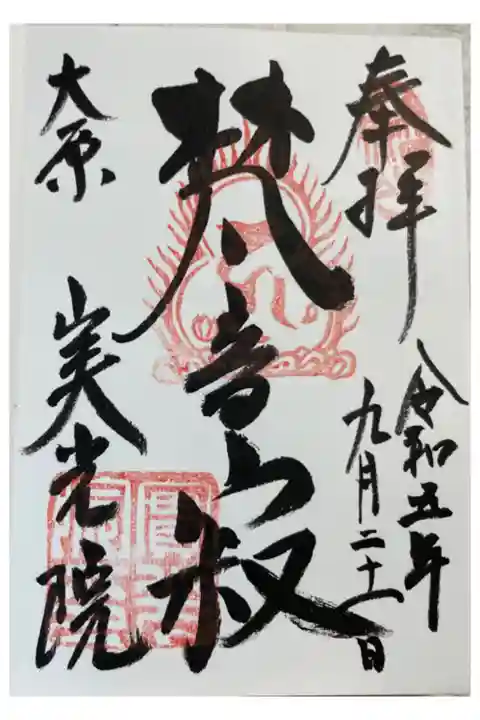 奉拝
令和五年
九月二十日
梵音寂
大原
実光院